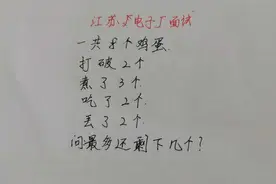 江苏电子厂面试
一共8个鸡蛋.
打破2个
煮了3个.
吃了2个.
丢了2个.
问最多还剩下几个?